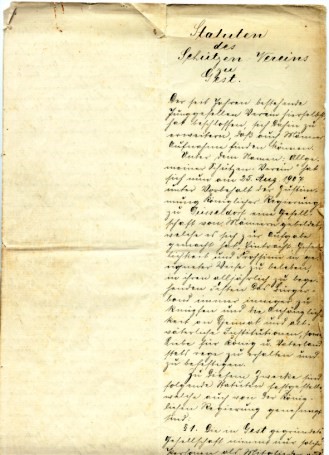 Statuten
des
Schützen Vereins
zu
Gest.
Der seit Jahren bestehende
Junggesellen Verein hierselbst
hat beschlossen, sich dahin zu
erweitern, daß auch Männer
Aufnahme finden können.
Unter dem Namen: Allge-
meiner Schützen Verein" hat
sich nun am 25. Aug 1907
unter Vorbehalt der Zustim-
mung Königlicher Regierung
zu Düsseldorf eine Gesell-
schaft von Männern gebildet,
welche es sich zur Aufgabe
gemacht hat, Eintracht,
lichkeit und Frohsinn in ge-
eigneter Weise zu beleben
in ihren alljährlich zu bege-
henden Festen das Bürger
band immer inniger zu
knüpfen und die Anhänglich-
keit an Heimat und alt-
väterliche Institutionen sowie
Liebe für König u. Vaterland
stets rege zu erhalten und
zu befestigen.
Zu diesem Zwecke sind
folgende Statuten festgestellt
welche auch von der König-
lichen Regierung genehmigt
sind.
§ 1. Die in Gest gegründete
Gesellschaft nimmt nur solche
Personen als Mitglieder auf